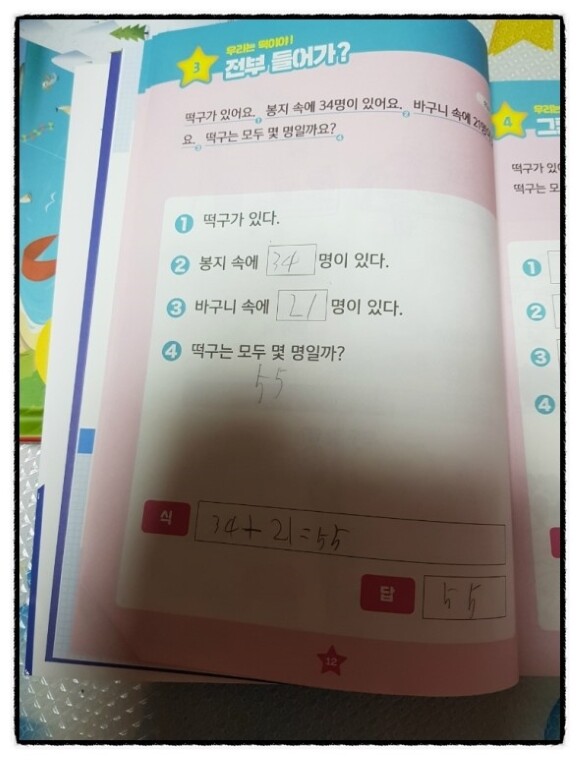 3
우리는 떡이야!
전부 들어가?
떡구가 있어요. 봉지 속에 34명이 있어요. 바구니 속에 21명이
요. 떡구는 모두 몇 명일까요?
1 떡구가 있다.
2 봉지 속에 34 명이 있다.
3 바구니 속에 21 명이 있다.
4 떡구는 모두 몇 명일까?
55
식 34+21=55
답 55
12
4
우리는
떡구가
떡구는 모
1
2
3
4